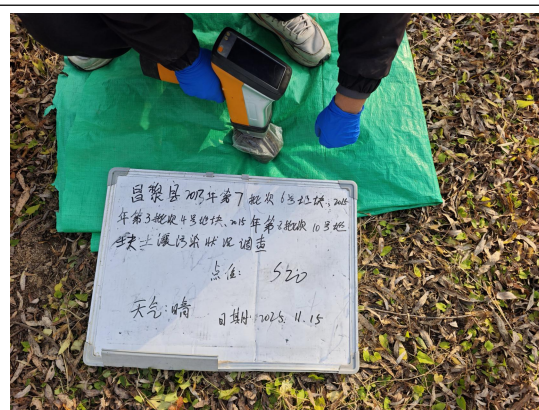 昌黎县2013年第7批次6号地块、2015
年第3批次4号地块、2015年第2批次10号地
块土壤污染状况调查
点位: S20
天气:晴 日期:2025.11.15